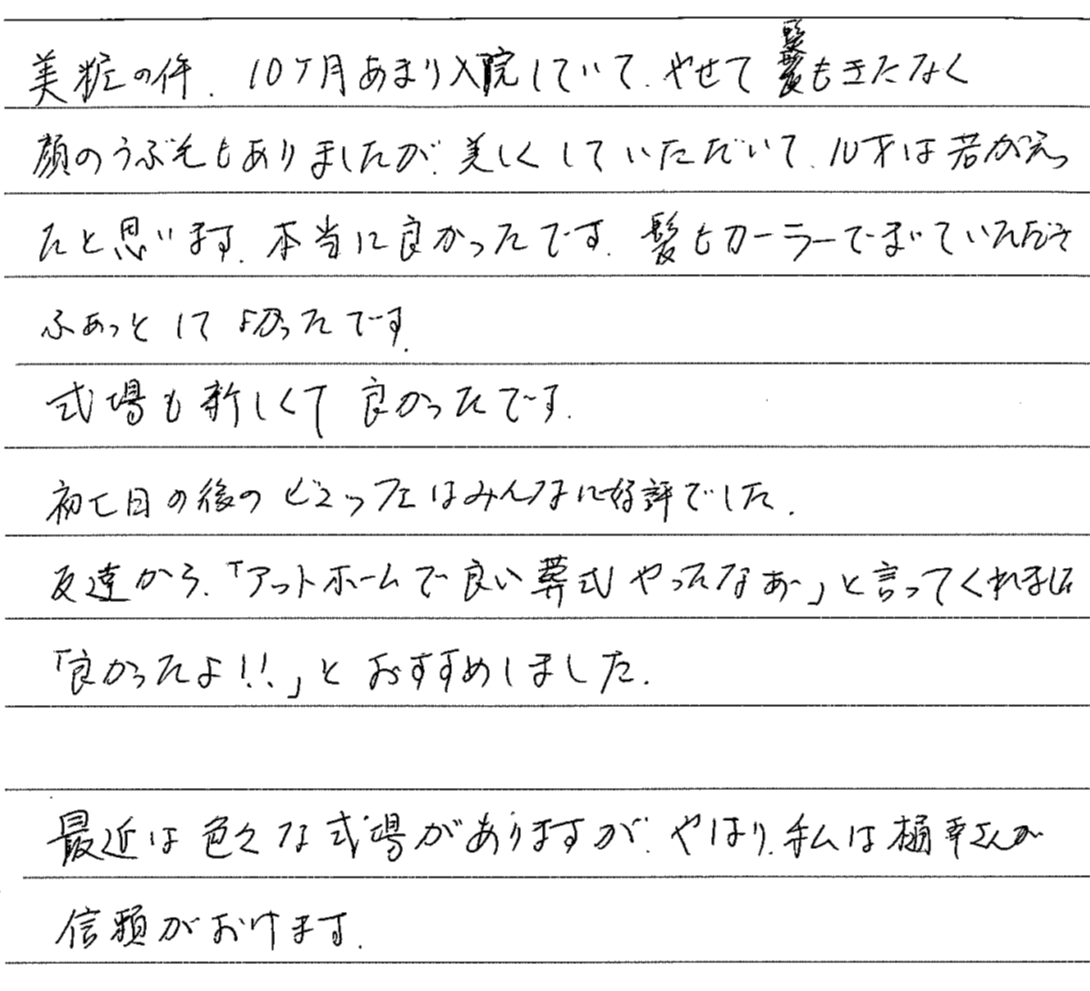 美粧の件、10ケ月あまり入院していて、やせて髪もきたなく
顔のうぶ毛もありましたが、美しくしていただいて、10才は若がえっ
たと思います。本当に良かったです。髪もカーラーでまいていただき
ふぁっとして良かったです。
式場も新しくて良かったです。
初七日の後のビュッフェはみんなに好評でした。
友達から、「アットホームで良い葬式やったなぁー」と言ってくれました
「良かったよ!!」とおすすめしました。
最近は色々な式場がありますが、やはり、私は樋幸さんが
信頼がおけます。